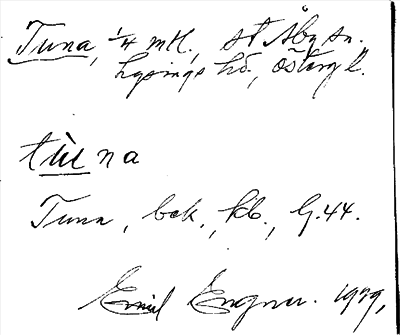 Tuna, 1/4 mtl., st Åby sn.
Lysings hd., Östergl.
tùu na
Tuna, bek., kb., G.44.
Emil Engner. 1929,